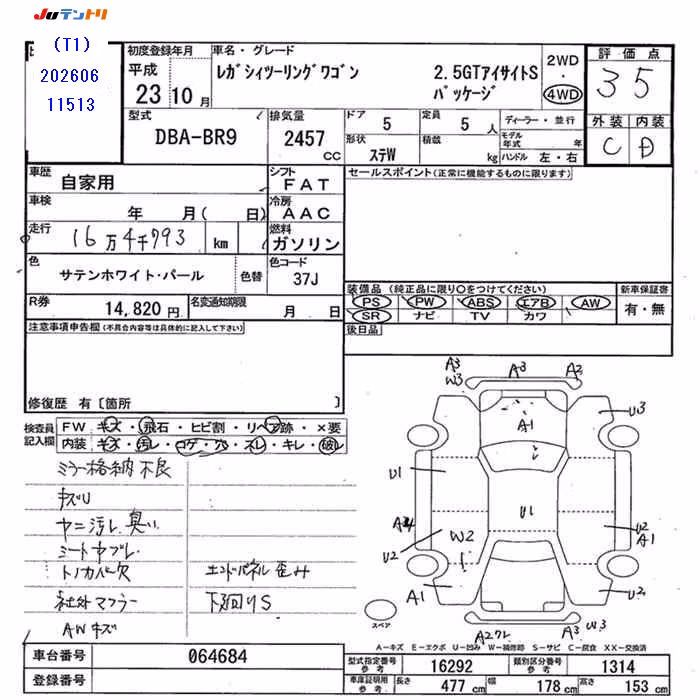 JUテントリ
(T1)
202606
11513
初度登録年月
平成
23 10 月
車名・グレード
レガシィツーリングワゴン 2.5GTアイサイトS
パッケージ
2WD
・
4WD
評価点
3 5
外装 内装
C D
型式
DBA-BR9
排気量
2457
CC
ドア
5
定員
5 人
形状
ステW
積載
kg
ディーラー・並行
モデル
年式 年
ハンドル 左・右
車歴
自家用
シフト
FAT
車検
年 月( 日)
冷房
AAC
走行
16万4千793 km
燃料
ガソリン
色
サテンホワイト・パール
色替
色コード
37J
R券
14,820 円
名変通知期限
月 日
セールスポイント(正常に機能するものに限ります)
装備品(純正品に限り○をつけてください)
PS PW ABS エアB AW
SR ナビ TV カワ
新車保証書
有・無
後日品
注意事項申告欄(不具合内容等は具体的に記入して下さい)
修復歴 有〔箇所 〕
検査員
記入欄
FW キズ・飛石・ヒビ割・リペア跡・×要
内装 キズ・汚レ・コゲ・穴・スレ・キレ・破レ
ミラー格納不良
キズU
ヤニ汚レ 臭い
シートヤブレ
トノカバー欠
社外マフラー
AWキズ
エンドパネル歪み
下廻りS
A3
W3
A3
A3
A1
U3
U1
U1
U2
A1
W2
U2
A1
U2
A3
W3
スペア
A-キズ E-エクボ U-凹み W-補修跡 S-サビ C-腐食 XX-交換済
車台番号
064684
登録番号
型式指定番号
参考
16292
類別区分番号
参考
1314
車庫証明用
参考
長さ
477 cm
幅
178 cm
高さ
153 cm